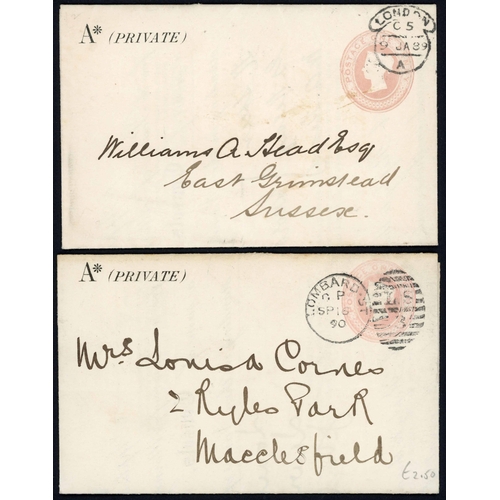 A* (PRIVATE)
LONDON
C5
9 JA 89
A
POSTAGE
Williams A. Head Esq
East Grinstead
Sussex.
A* (PRIVATE)
LOMBARD ST
C P
SP 16
90
Mrs Louisa Cornes
2 Ryles Park
Macclesfield
£2.50